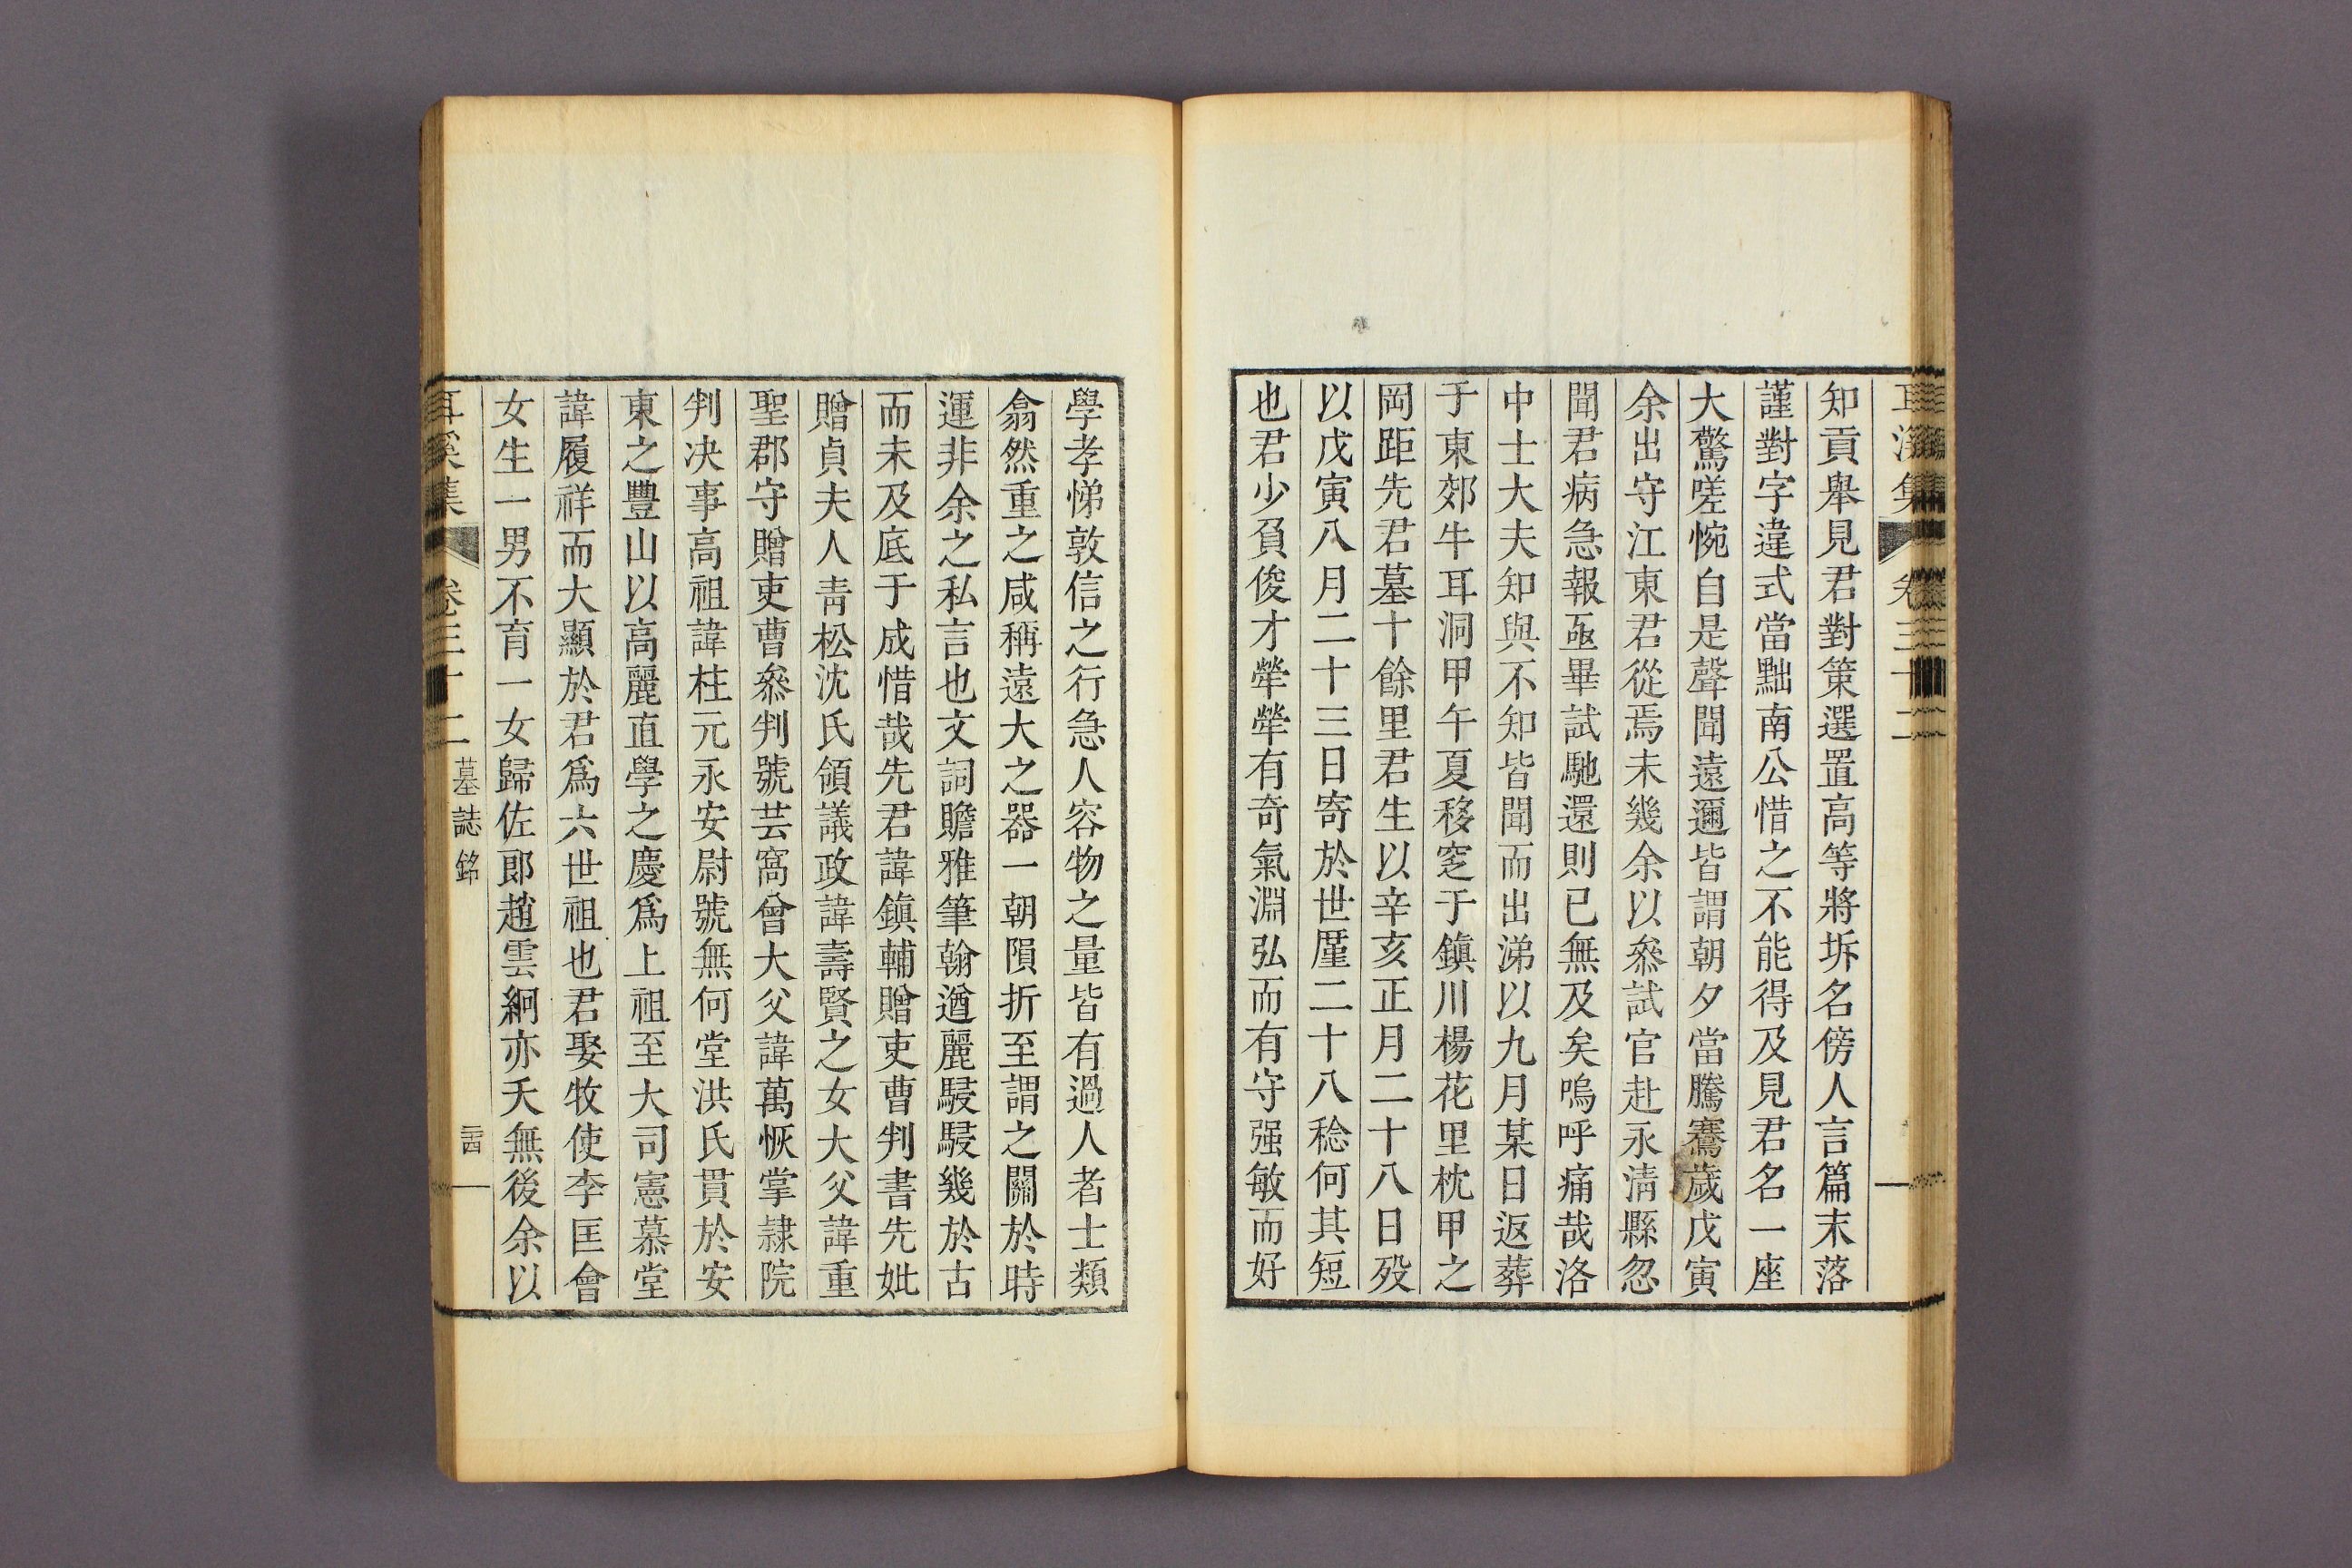 耳溪集 卷三十二
知貢舉見君對策選置高等將坼名傍人言篇末落
謹對字違式當黜南公惜之不能得及見君名一座
大驚嗟惋自是聲聞遠邇皆謂朝夕當騰騫歲戊寅
余出守江東君從焉未幾余以叅試官赴永淸縣忽
聞君病急報亟畢試馳還則已無及矣嗚呼痛哉洛
中士大夫知與不知皆聞而出涕以九月某日返葬
于東郊牛耳洞甲午夏移窆于鎭川楊花里枕甲之
岡距先君墓十餘里君生以辛亥正月二十八日歿
以戊寅八月二十三日寄於世厪二十八稔何其短
也君少負俊才犖犖有奇氣淵弘而有守强敏而好
學孝悌敦信之行急人容物之量皆有過人者士類
翕然重之咸稱遠大之器一朝隕折至謂之關於時
運非余之私言也文詞贍雅筆翰遒麗駸駸幾於古
而未及底于成惜哉先君諱鎭輔贈吏曹判書先妣
贈貞夫人靑松沈氏領議政諱壽賢之女大父諱重
聖郡守贈吏曹叅判號芸窩曾大父諱萬恢掌隷院
判决事高祖諱柱元永安尉號無何堂洪氏貫於安
東之豐山以高麗直學之慶爲上祖至大司憲慕堂
諱履祥而大顯於君爲六世祖也君娶牧使李匡會
女生一男不育一女歸佐郞趙雲綗亦夭無後余以
耳溪集 卷三十二 墓誌銘 二十四